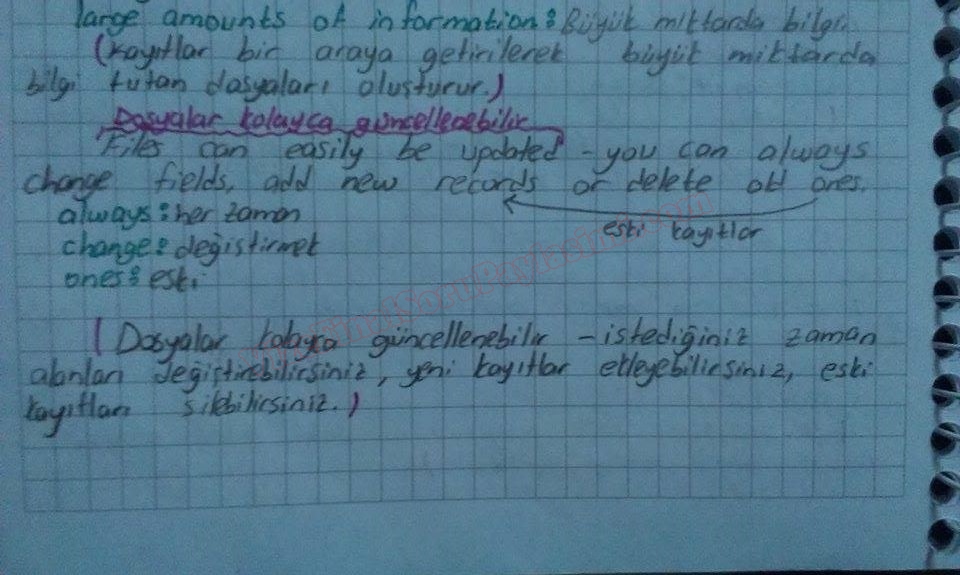 large amounts of information: Büyük miktarda bilgi.
(Kayıtlar bir araya getirilerek büyük miktarda
bilgi tutan dosyaları oluşturur.)
Dosyalar kolayca güncellenebilir
Files can easily be updated - you can always
change fields, add new records or delete old ones.
always: her zaman
eski kayıtlar
change: değiştirmek
ones: eski
(Dosyalar kolayca güncellenebilir - istediğiniz zaman
alanları değiştirebilirsiniz, yeni kayıtlar ekleyebilirsiniz, eski
kayıtları silebilirsiniz.)